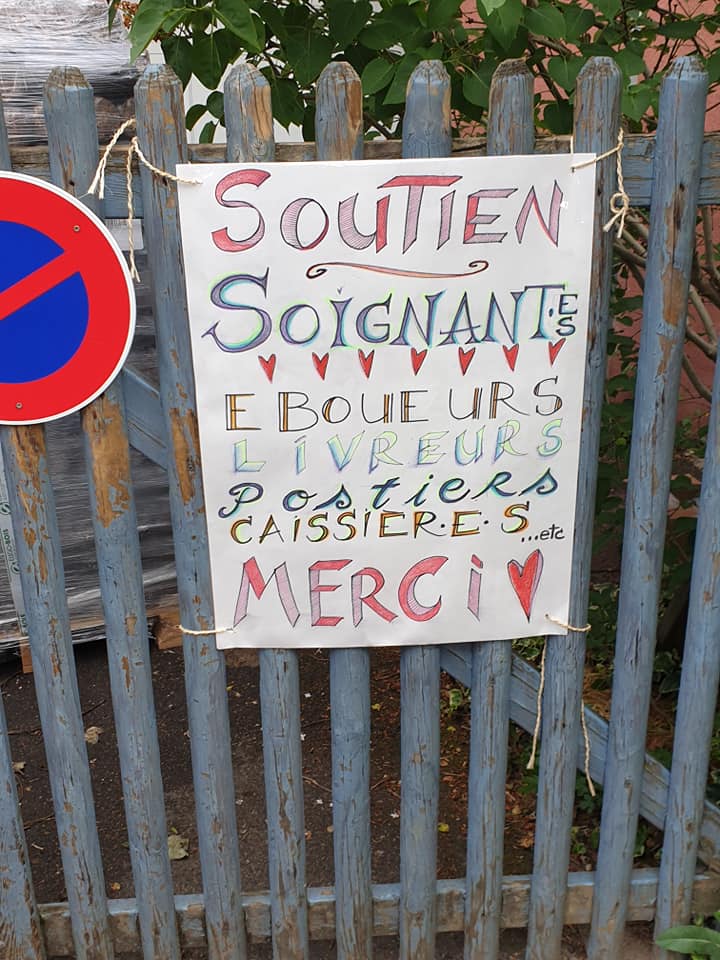 SOUTIEN
SOIGNANT·ES
EBOUEURS
LIVREURS
Postiers
CAISSIÈR·E·S
...etc
MERCI